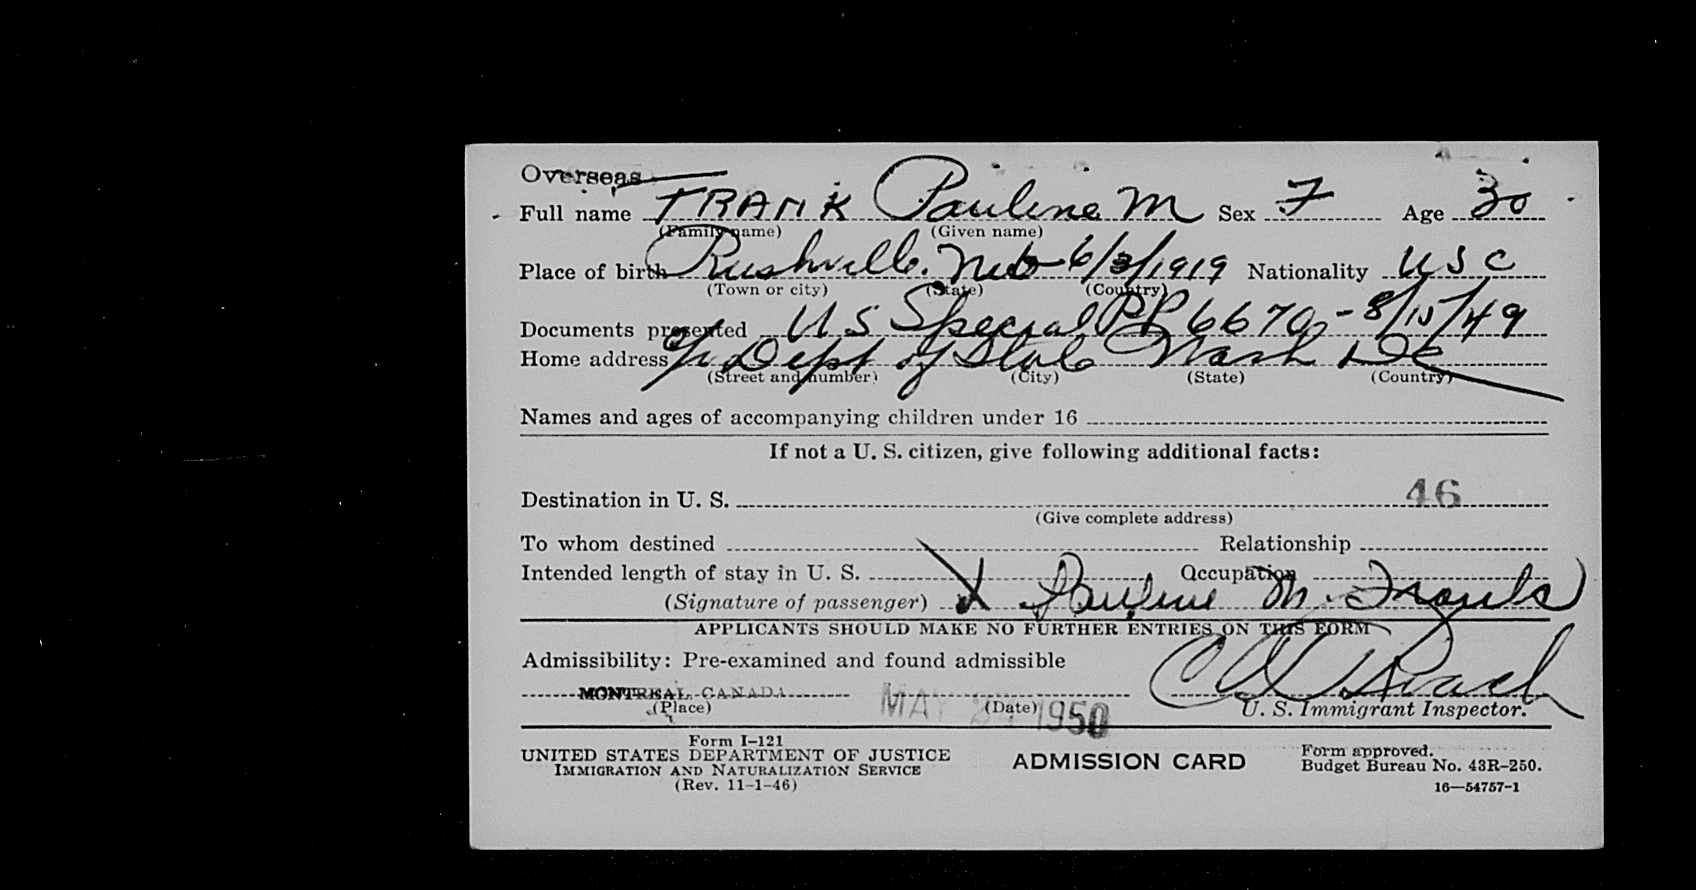 Overseas
Full name FRANK Pauline M Sex F Age 30
(Family name) (Given name)
Place of birth Rushville. Neb 6/3/1919 Nationality USC
(Town or city) (State) (Country)
Documents presented US Special PP 6670 - 8/15/49
Home address c/o Dept of State Wash DC
(Street and number) (City) (State) (Country)
Names and ages of accompanying children under 16
If not a U. S. citizen, give following additional facts:
Destination in U. S. 46
(Give complete address)
To whom destined Relationship
Intended length of stay in U. S. Occupation
(Signature of passenger) X Pauline M. Frank
APPLICANTS SHOULD MAKE NO FURTHER ENTRIES ON THIS FORM
Admissibility: Pre-examined and found admissible
MONTREAL, CANADA MAY 1950
(Place) (Date) U. S. Immigrant Inspector.
Form I-121
UNITED STATES DEPARTMENT OF JUSTICE
IMMIGRATION AND NATURALIZATION SERVICE
(Rev. 11-1-46)
ADMISSION CARD
Form approved.
Budget Bureau No. 43R-250.
16—54757-1